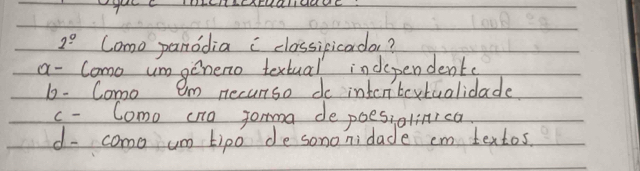 2º Como paródia é classificada?
a- Como um gênero textual independente
b- Como um recurso de intertextualidade
c- Como forma de poesia lírica
d- como um tipo de sonoridade em textos.